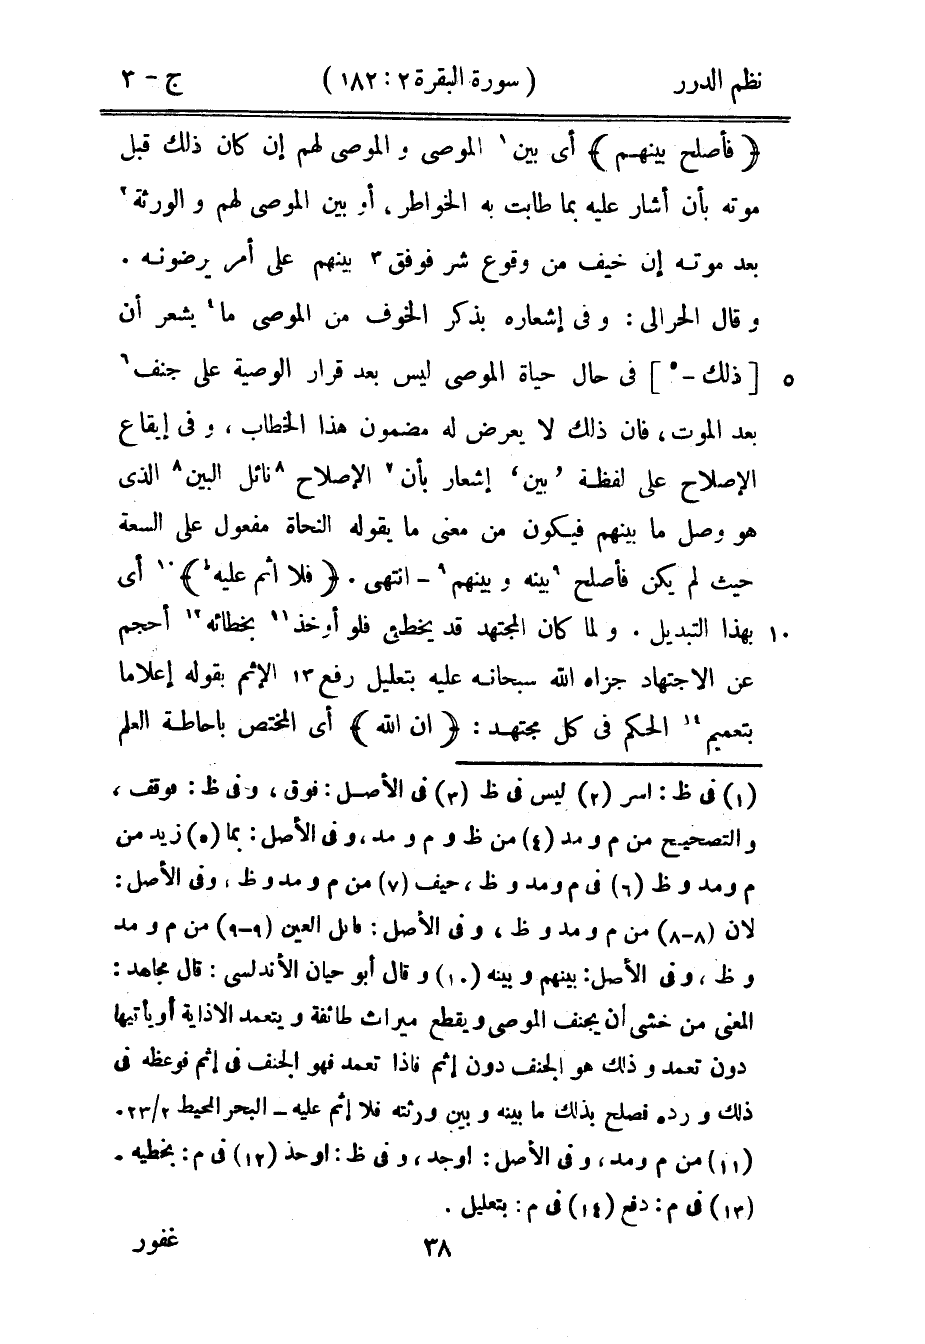 نظم الدرر ( سورة البقرة ٢ : ١٨٢ ) ج - ٣
﴿ فأصلح بينهم ﴾ أى بين ١ الموصى و الموصى لهم إن كان ذلك قبل
موته بأن أشار عليه بما طابت به الخواطر ، أو بين الموصى لهم و الورثة ٢
بعد موته إن خيف من وقوع شر فوفق ٣ بينهم على أمر يرضونه .
و قال الحرالى : و فى إشعاره بذكر الخوف من الموصى ما ٤ يشعر أن
٥ [ ذلك - ٥ ] فى حال حياة الموصى ليس بعد قرار الوصية على جنف ٦
بعد الموت ، فان ذلك لا يعرض له مضمون هذا الخطاب ، و فى إيقاع
الإصلاح على لفظة ’ بين ‘ إشعار بأن ٧ الإصلاح ٨ نائل البين ٨ الذى
هو وصل ما بينهم فيكون من معنى ما يقوله النحاة مفعول على السعة
حيث لم يكن فأصلح ٩ بينه و بينهم ٩ - انتهى . ﴿ فلا اثم عليه ﴾ ١٠ أى
١٠ بهذا التبديل . و لما كان المجتهد قد يخطئ فلو أوخذ ١١ بخطائه ١٢ أحجم
عن الاجتهاد جزاه الله سبحانه عليه بتعليل رفع ١٣ الإثم بقوله إعلاما
بتعميم ١٤ الحكم فى كل مجتهد : ﴿ ان الله ﴾ أى المختص باحاطة العلم
(١) فى ظ : اسر (٢) ليس فى ظ (٣) فى الأصل : فوق ، و فى ظ : موقف ،
و التصحيح من م و مد (٤) من ظ و م و مد ، و فى الأصل : بما (٥) زيد من
م و مد و ظ (٦) فى م و مد و ظ ، حيف (٧) من م و مد و ظ ، وفى الأصل :
لان (٨-٨) من م و مد و ظ ، و فى الأصل : مابل العين (٩-٩) من م و مد
و ظ ، و فى الأصل : بينهم و بينه (١٠) و قال أبو حيان الأندلسى : قال مجاهد :
المعنى من خشى أن يجنف الموصى و يقطع ميراث طائفة و يتعمد الاذاية أو يأتيها
دون تعمد و ذلك هو الجنف دون إثم فاذا تعمد فهو الجنف فى إثم فوعظه فى
ذلك و رده فصلح بذلك ما بينه و بين ورثته فلا إثم عليه - البحر المحيط ٢/٢٣ .
(١١) من م و مد ، و فى الأصل : اوجد ، و فى ظ : اوحذ (١٢) فى م : بخطيه .
(١٣) فى م : دفع (١٤) فى م : بتعليل .
٣٨ غفور